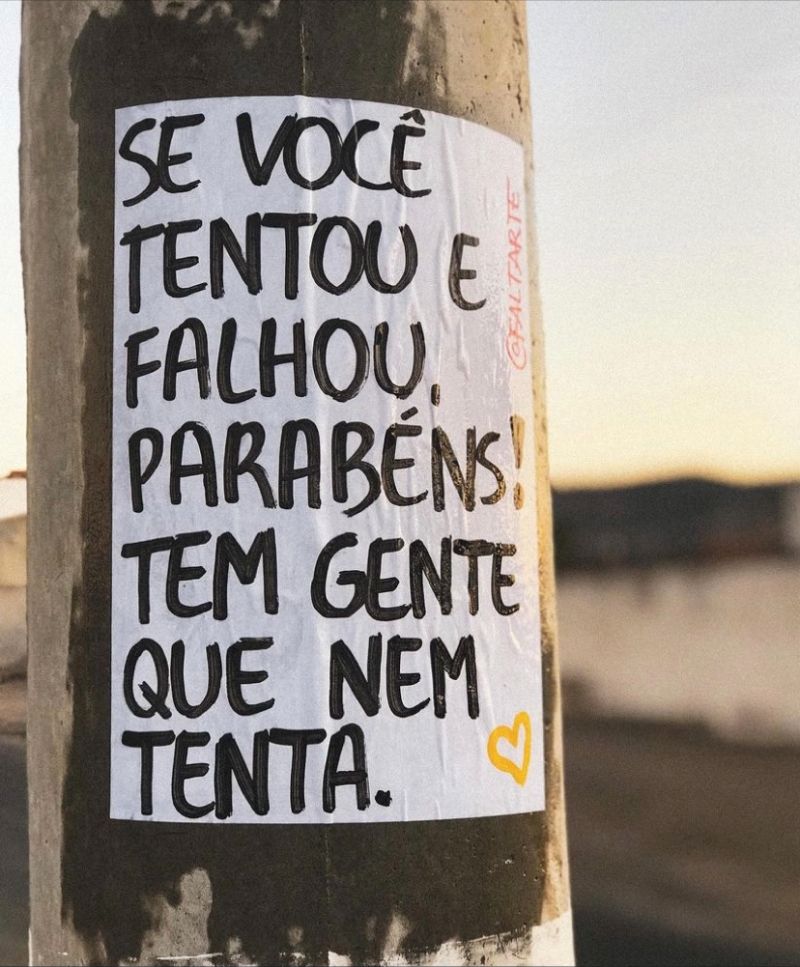 SE VOCÊ
TENTOU E
FALHOU,
PARABÉNS!
TEM GENTE
QUE NEM
TENTA.
@FALTARTE